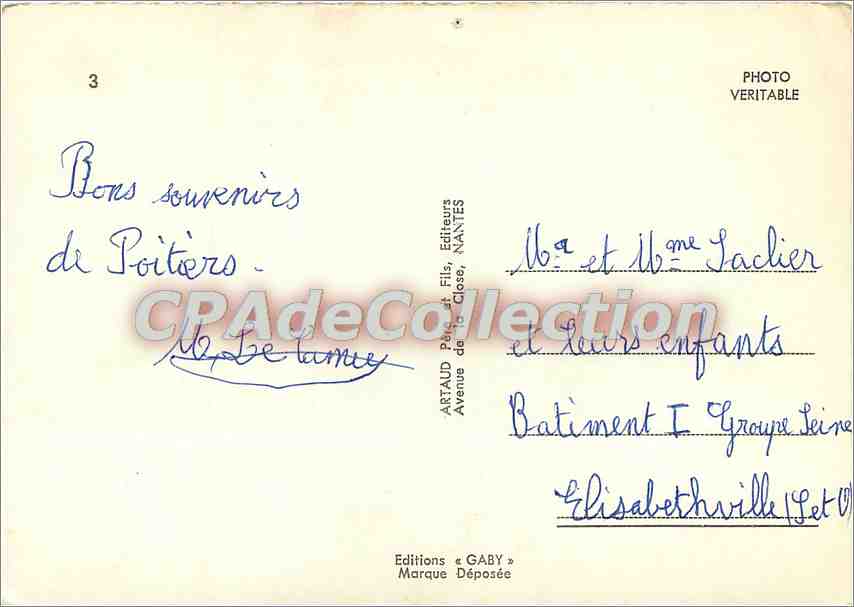 3
PHOTO
VERITABLE
Bons souvenirs
de Poitiers.
ARTAUD Père et Fils, Editeurs
Avenue de la Close, NANTES
Mr et Mme Saclier
et leurs enfants
Batiment I Groupe Seine
Elisabethville (S et O)
CPAdeCollection
Editions « GABY »
Marque Déposée